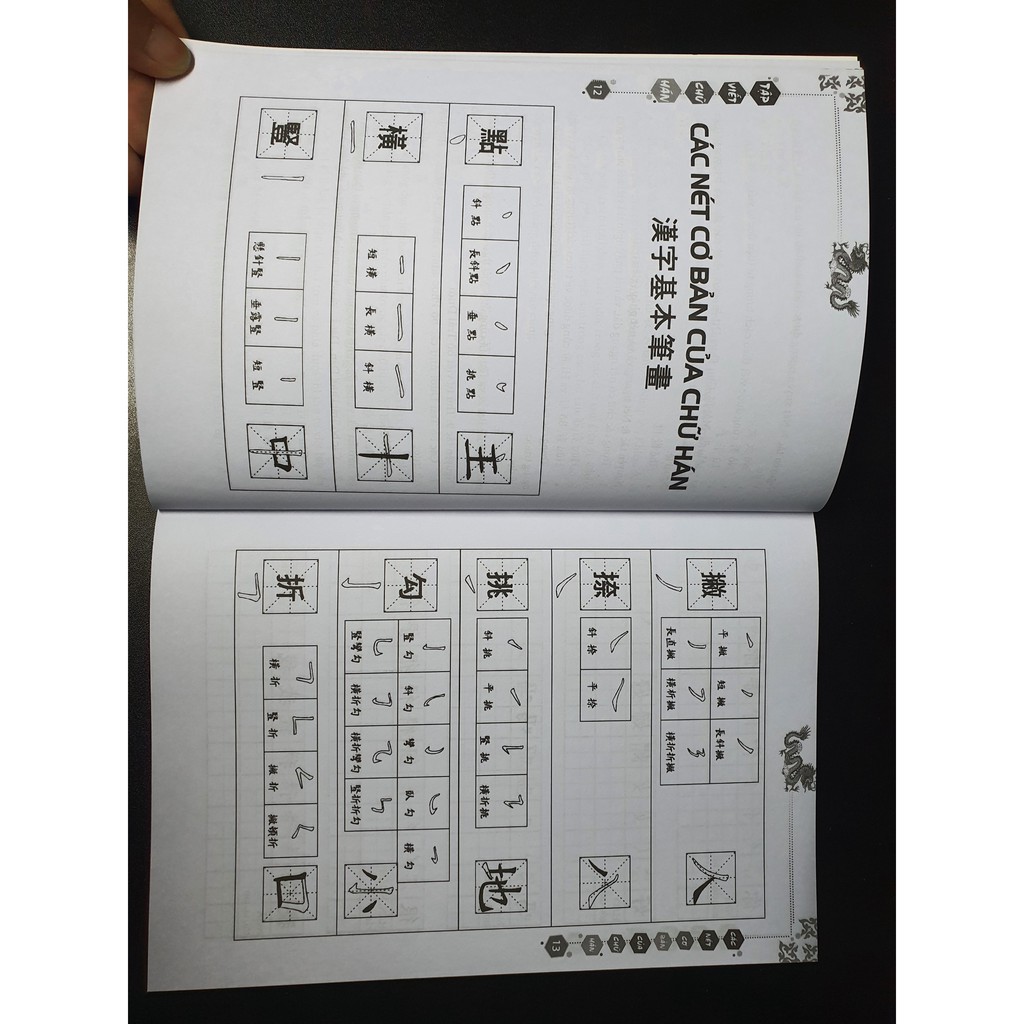 TẬP
VIẾT
CHỮ
HÁN
12
CÁC NÉT CƠ BẢN CỦA CHỮ HÁN
漢字基本筆畫
點 斜點 長斜點 垂點 挑點 主
橫 短橫 長橫 斜橫 十
豎 懸針豎 垂露豎 短豎 中
CÁC
NÉT
CƠ
BẢN
CỦA
CHỮ
HÁN
13
撇 平撇 短撇 長斜撇 人
長直撇 橫折撇 橫折折撇
捺 斜捺 平捺 八
挑 斜挑 平挑 豎挑 橫折挑 地
勾 豎勾 斜勾 彎勾 臥勾 橫勾 小
豎彎勾 橫折勾 橫折彎勾 豎折折勾
折 橫折 豎折 撇折 撇頓折 口